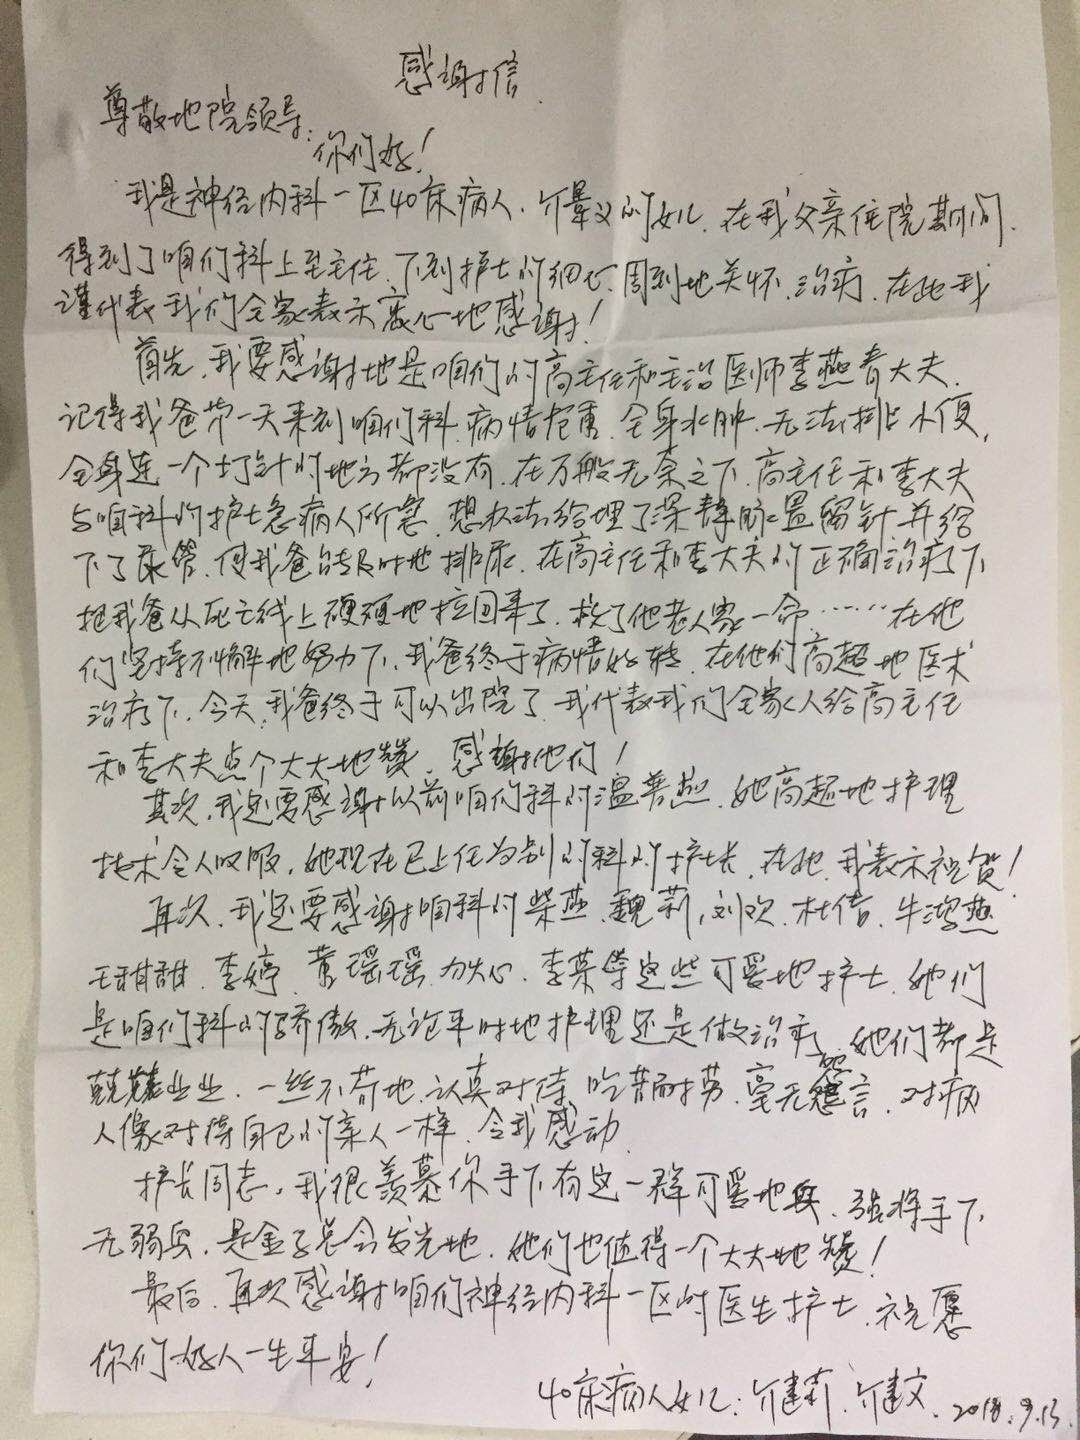 感谢信
尊敬地院领导：
你们好！
我是神经内科一区40床病人，介晕义的女儿，在我父亲住院期间，
得到了咱们科上至主任，下到护士的细心、周到地关怀、治疗，在此我
谨代表我们全家表示衷心地感谢！
首先，我要感谢地是咱们的高主任和主治医师李燕青大夫，
记得我爸第一天来到咱们科，病情危重，全身水肿，无法排小便，
全身连一个打针的地方都没有，在万般无奈之下，高主任和李大夫
与咱科的护士急病人所急，想办法给埋了深静脉置留针并给
下了尿管，使我爸能及时地排尿，在高主任和李大夫的正确治疗下，
把我爸从死亡线上硬硬地拉回来了，救了他老人家一命……在他
们坚持不懈地努力下，我爸终于病情好转，在他们高超地医术
治疗下，今天，我爸终于可以出院了，我代表我们全家人给高主任
和李大夫点个大大地赞，感谢他们！
其次，我还要感谢以前咱们科的温善，她高超地护理
技术令人叹服，她现在已上任为别的科的护长，在此，我表示祝贺！
再次，我还要感谢咱科的柴燕、魏莉，刘欢，杜倩，牛鸿燕
王甜甜，李婷，黄瑶瑶，李荣学这些可爱地护士，她们
是咱们科的骄傲，无论平时地护理还是做治疗，她们都是
兢兢业业，一丝不苟地，认真对待，吃苦耐劳，毫无怨言，对病
人像对待自己的亲人一样，令我感动
护长同志，我很羡慕你手下有这一群可爱地兵，强将手下
无弱兵，是金子总会发光地，她们也值得一个大大地赞！
最后，再次感谢咱们神经内科一区的医生护士，祝愿
你们好人一生平安！
40床病人女儿：介建莉，介建文，2018.9.13